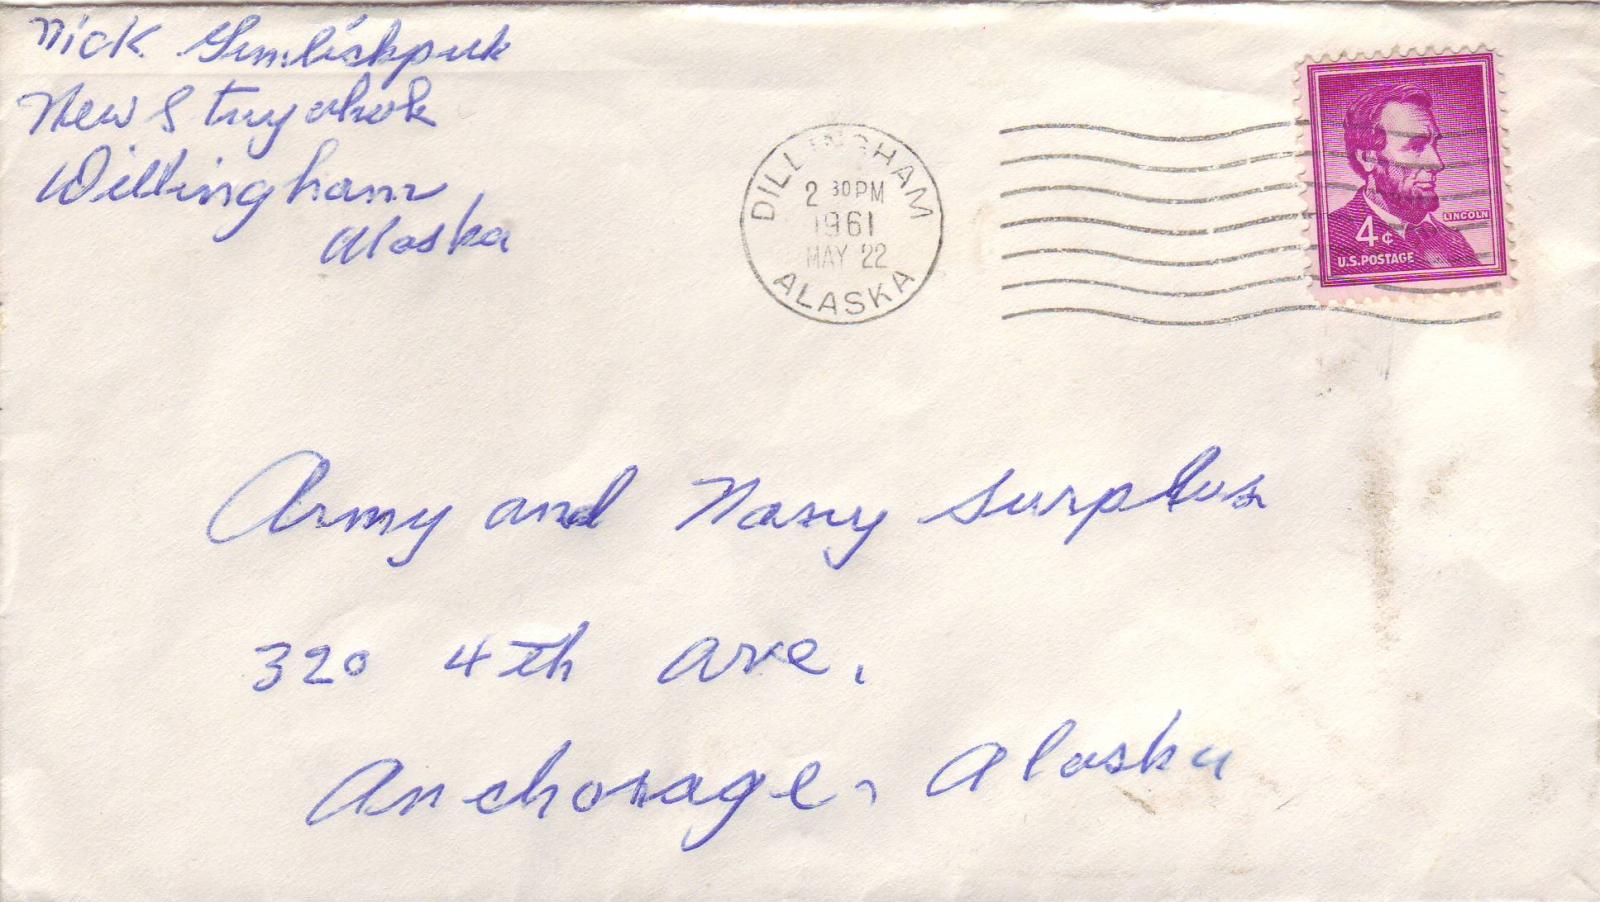 Nick Gumlickpuk
New Stuyahok
Dillingham
Alaska
DILLINGHAM
2 30 PM
1961
MAY 22
ALASKA
LINCOLN
4¢
U.S. POSTAGE
Army and Navy Surplus
320 4th Ave.
Anchorage, Alaska